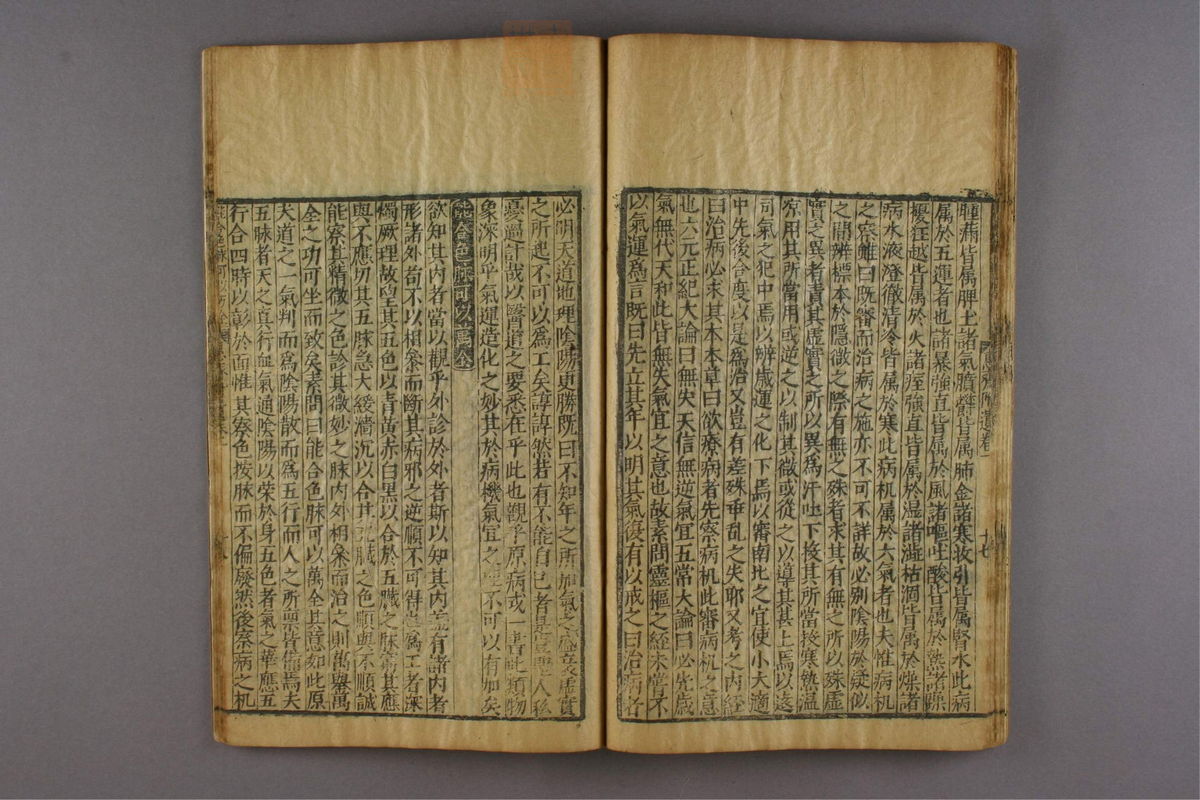 腫滿皆属脾土諸氣膹鬱皆属肺金諸寒收引皆属腎水此病
属於五運者也諸暴強直皆属於風諸嘔吐酸皆属於熱諸躁
擾狂越皆属於火諸痓強直皆属於湿諸澁枯涸皆属於燥諸
病水液澄徹清冷皆属於寒此病机属於六氣者也夫惟病机
之察雖曰既審而治病之施亦不可不詳故必別陰陽於疑似
之間辨標本於隱微之際有無之殊者求其有無之所以殊虛
實之異者責其虛實之所以異為汗吐下投其所當投寒熱温
凉用其所當用或逆之以制其微或從之以導其甚上焉以遠
司氣之犯中焉以辨歳運之化下焉以審南北之宜使小大適
中先後合度以是為治又豈有差殊乖乱之失耶又考之内経
曰治病必求其本本草曰欲療病者先察病机此審病机之意
也六元正紀大論曰無失天信無逆氣宜五常大論曰必先歳
氣無伐天和此皆無失氣宜之意也故素問靈樞之経未嘗不
以氣運為言既曰先立其年以明其氣復有以戒之曰治病者
必明天道地理陰陽更勝既曰不知年之所加氣之盛衰虛實
之所起不可以為工矣諄諄然若有不能自已者是豈聖人私
憂過計哉以醫道之要悉在乎此也觀乎原病式一書比類物
象深明乎氣運造化之妙其於病機氣宜之理不可以有加矣
能合色脉可以萬全
欲知其内者當以觀乎外診於外者斯以知其内盖有諸内者
形諸外苟不以相叅而断其病邪之逆順不可得也為工者深
燭厥理故望其五色以青黄赤白黒以合於五臓之脉窮其應
與不應切其五脉急大緩濇沉以合其五臓之色順與不順誠
能察其精微之色診其微妙之脉内外相叅而治之則萬舉萬
全之功可坐而致矣素問曰能合色脉可以萬全其意如此原
夫道之一氣判而為陰陽散而為五行而人之所禀皆備焉夫
五脉者天之真行血氣通陰陽以荣於身五色者氣之華應五
行合四時以彰於面惟其察色按脉而不偏廢然後察病之机